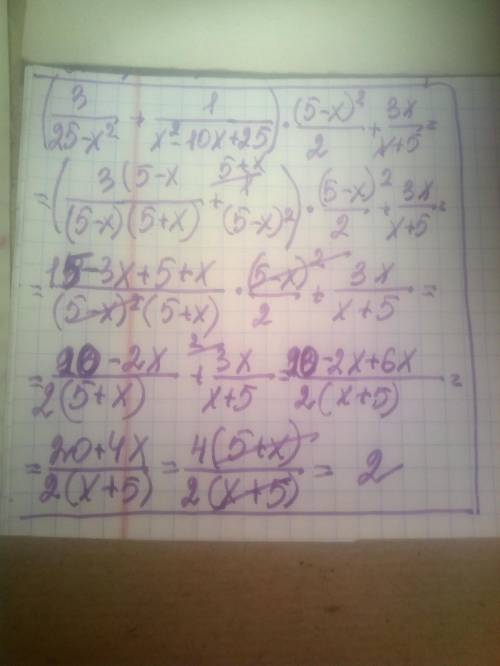 (3/(25-x²) + 1/(x²-10x+25)) · (5-x)²/2 + 3x/(x+5) =
= (3(5-x/((5-x)(5+x) + 5+x/(5-x)²) · (5-x)²/2 + 3x/(x+5) =
= (15-3x+5+x)/((5-x)²(5+x)) · (5-x)²/2 + 3x/(x+5) =
= (20-2x)/(2(5+x)) + 2/3x/(x+5) = (20-2x+6x)/(2(x+5)) =
= (20+4x)/(2(x+5)) = 4(5+x)/(2(x+5)) = 2